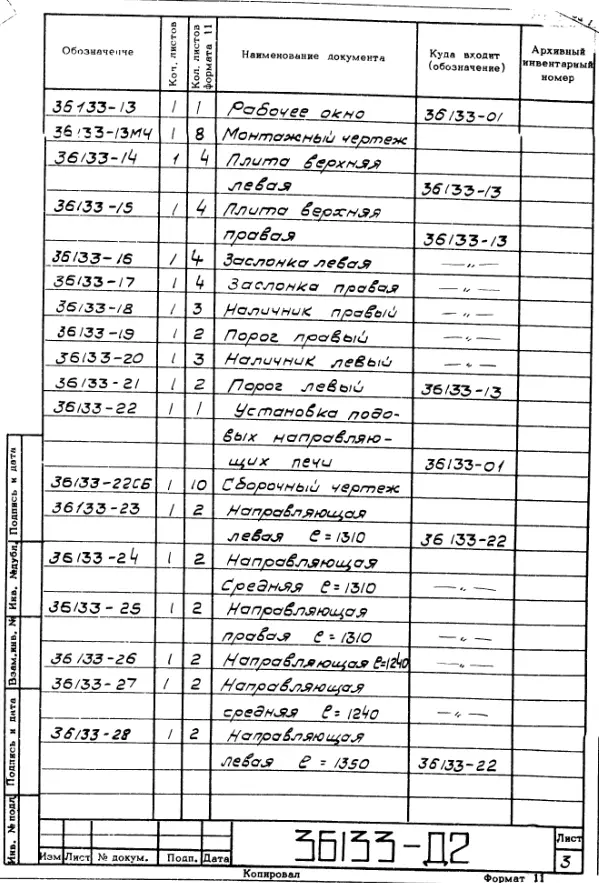 Обозначение Кол. листов Кол. листов формата 11 Наименование документа Куда входит (обозначение) Архивный инвентарный номер
36133-13 1 1 Рабочее окно 36133-01
36133-13МЧ 1 8 Монтажный чертеж
36133-14 1 4 Плита верхняя
левая 36133-13
36133-15 1 4 Плита верхняя
правая 36133-13
36133-16 1 4 Заслонка левая —〃—
36133-17 1 4 Заслонка правая —〃—
36133-18 1 3 Наличник правый —〃—
36133-19 1 2 Порог правый —〃—
36133-20 1 3 Наличник левый —〃—
36133-21 1 2 Порог левый 36133-13
36133-22 1 1 Установка подо-
вых направляю-
щих печи 36133-01
36133-22СБ 1 10 Сборочный чертеж
36133-23 1 2 Направляющая
левая ℓ=1310 36133-22
36133-24 1 2 Направляющая
Средняя ℓ=1310 —〃—
36133-25 1 2 Направляющая
правая ℓ=1310 —〃—
36133-26 1 2 Направляющая ℓ=1240 —〃—
36133-27 1 2 Направляющая
средняя ℓ=1240 —〃—
36133-28 1 2 Направляющая
левая ℓ=1350 36133-22
Подпись и дата
Инв. №дубл.
Взам.инв. №
Подпись и дата
Инв. № подл.
Изм Лист № докум. Подп. Дата
36133-Д2
Лист
3
Копировал Формат 11